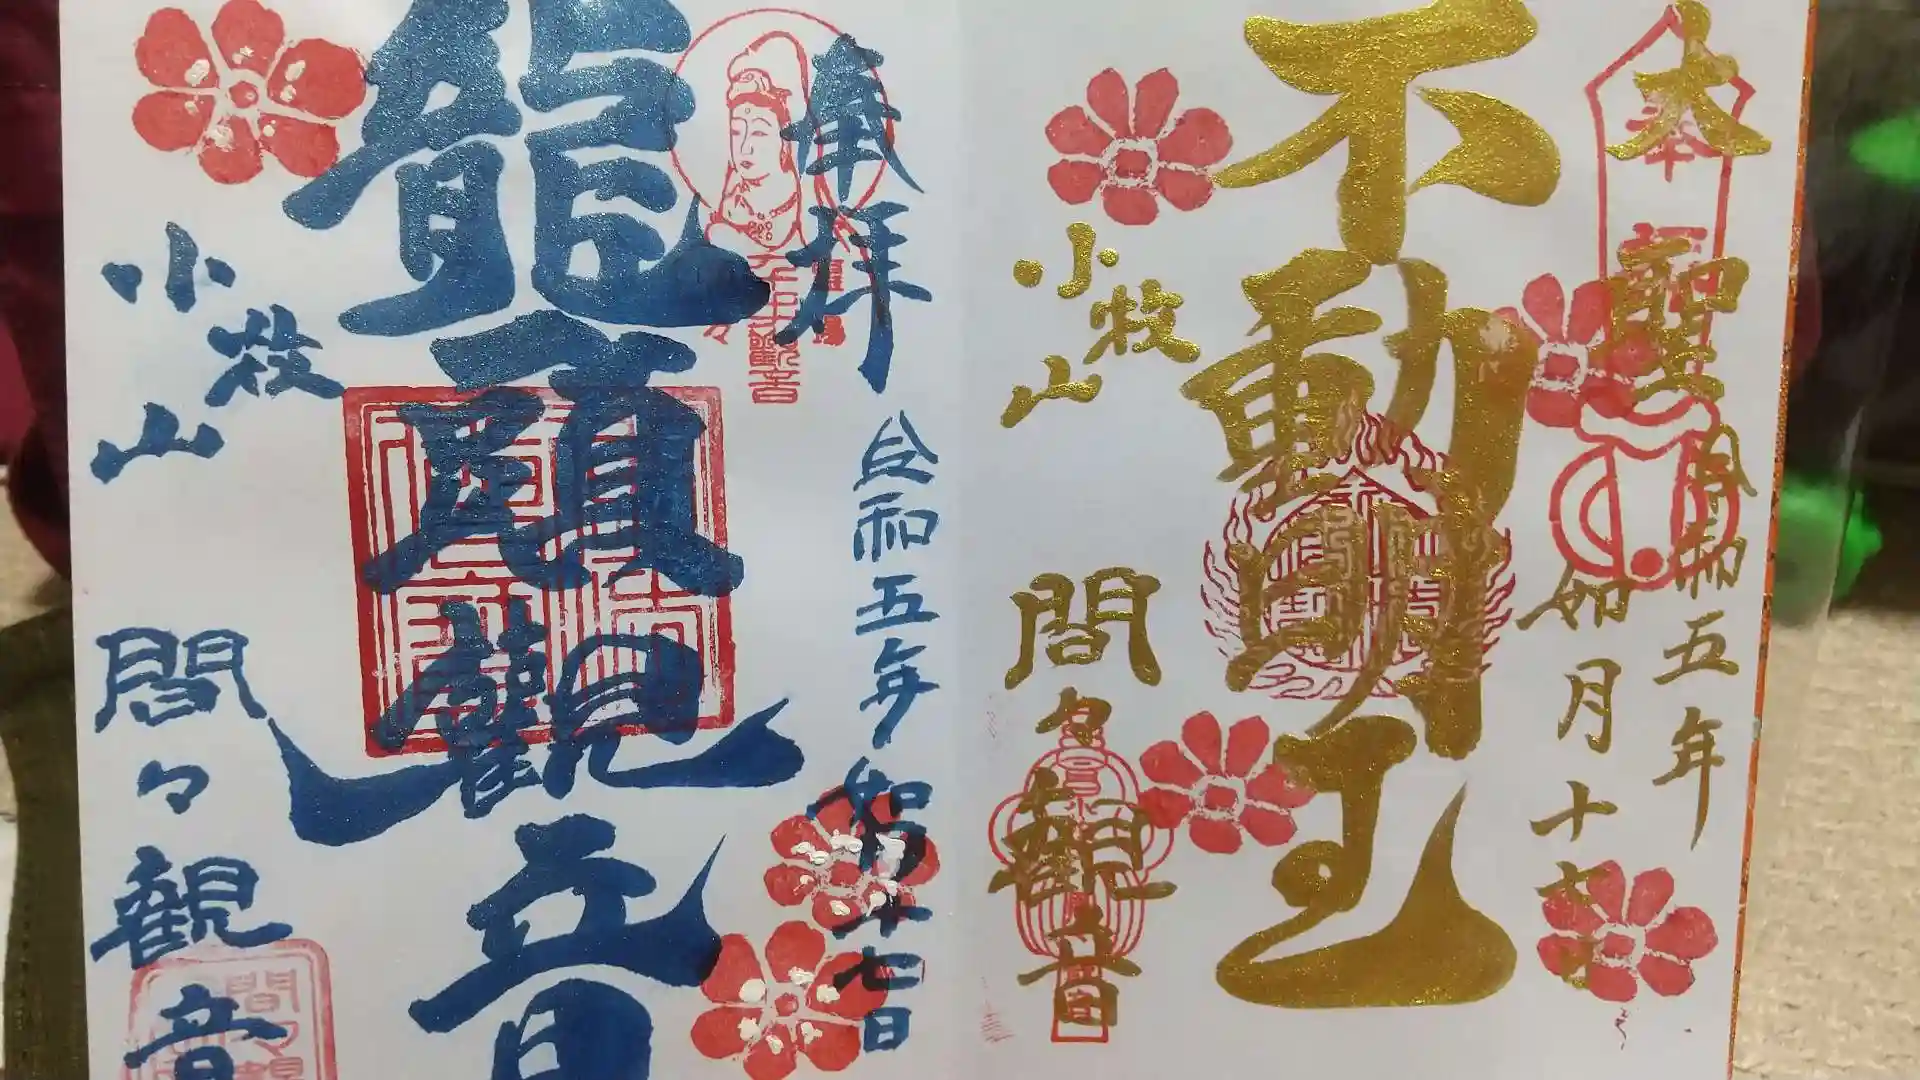 大聖
令和五年
如月十七日
不動明王
小牧山
間々観音
奉拝
令和五年如月十七日
龍頭觀音
小牧山
間々観音